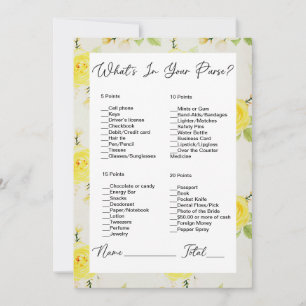 What's In Your Purse?
5 Points
__Cell phone
__Keys
__Driver's license
__Checkbook
__Debit/Credit card
__Hair tie
__Pen
__Tissues
__Glasses/Sunglasses
10 Points
__Mints or Gum
__Band-Aids/Bandages
__Lighter/Matches
__Safety Pins
__Water Bottle
__Business Card
__Lipstick/Lipgloss
__Over the Counter
Medicine
15 Points
__Chocolate or candy
__Energy Bar
__Snacks
__Deodorant
__Paper/Notebook
__Lotion
__Tweezers
__Perfume
__Jewelry
20 Points
__Passport
__Book
__Pocket Knife
__Dental Floss/Pick
__Photo of the Bride
__$50.00 or more of cash
__Foreign Money
__Pepper Spray
Name______ Total____